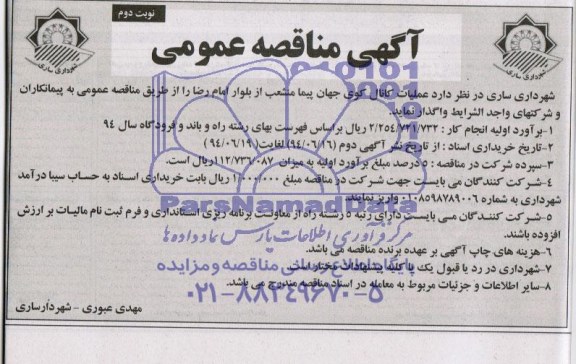 نوبت دوم
آگهی مناقصه عمومی
شهرداری ساری
شهرداری ساری
شهرداری ساری در نظر دارد عملیات کانال کوی جهان پیما منشعب از بلوار امام رضا را از طریق مناقصه عمومی به پیمانکاران
و شرکتهای واجد الشرایط واگذار نماید.
۱-برآورد اولیه انجام کار : ۲/۲۵۴/۷۲۱/۷۳۲ ریال براساس فهرست بهای رشته راه و باند و فرودگاه سال ۹۴
۲-تاریخ خریداری اسناد : از تاریخ نشر آگهی دوم (۹۴/۰۶/۱۶) لغایت (۹۴/۰۶/۱۹)
۳-سپرده شرکت در مناقصه : ۵ درصد مبلغ برآورد اولیه به میزان ۱۱۲/۷۳۶/۰۸۷ ریال است.
۴-شرکت کنندگان می بایست جهت شرکت در مناقصه مبلغ ۱/۰۰۰/۰۰۰ ریال بابت خریداری اسناد به حساب سیبا درآمد
شهرداری به شماره ۰۱۰۸۵۹۸۷۸۹۰۰۶ واریز نمایند.
۵-شرکت کنندگان می بایست دارای رتبه ۵ رشته راه از معاونت برنامه ریزی استانداری و فرم ثبت نام مالیات بر ارزش
افزوده باشند.
۶-هزینه های چاپ آگهی بر عهده برنده مناقصه می باشد.
۷-شهرداری در رد یا قبول یک یا کلیه پیشنهادات مختار است.
۸-سایر اطلاعات و جزئیات مربوط به معامله در اسناد مناقصه مندرج می باشد.
مهدی عبوری - شهردار ساری
ParsNamadData
مرکز فرآوری اطلاعات پارس نماد داده ها
پایگاه اطلاع رسانی مناقصه و مزایده
۰۲۱-۸۸۳۴۹۶۷۰-۵